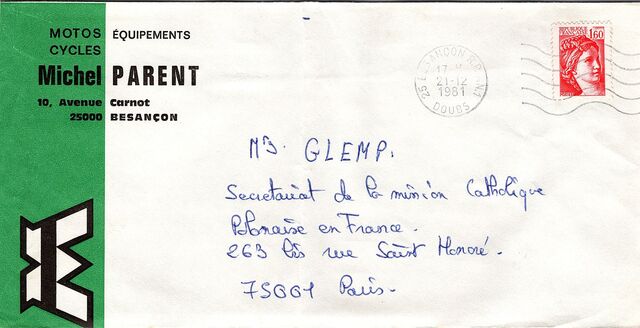 MOTOS ÉQUIPEMENTS
CYCLES
Michel PARENT
10, Avenue Carnot
25000 BESANÇON
25 BESANÇON R.P.
17 H
21-12
1981
DOUBS
1,60
Mgr GLEMP.
Secretariat de la mission Catholique
Polonaise en France.
263 bis rue Saint Honoré.
75001 Paris.